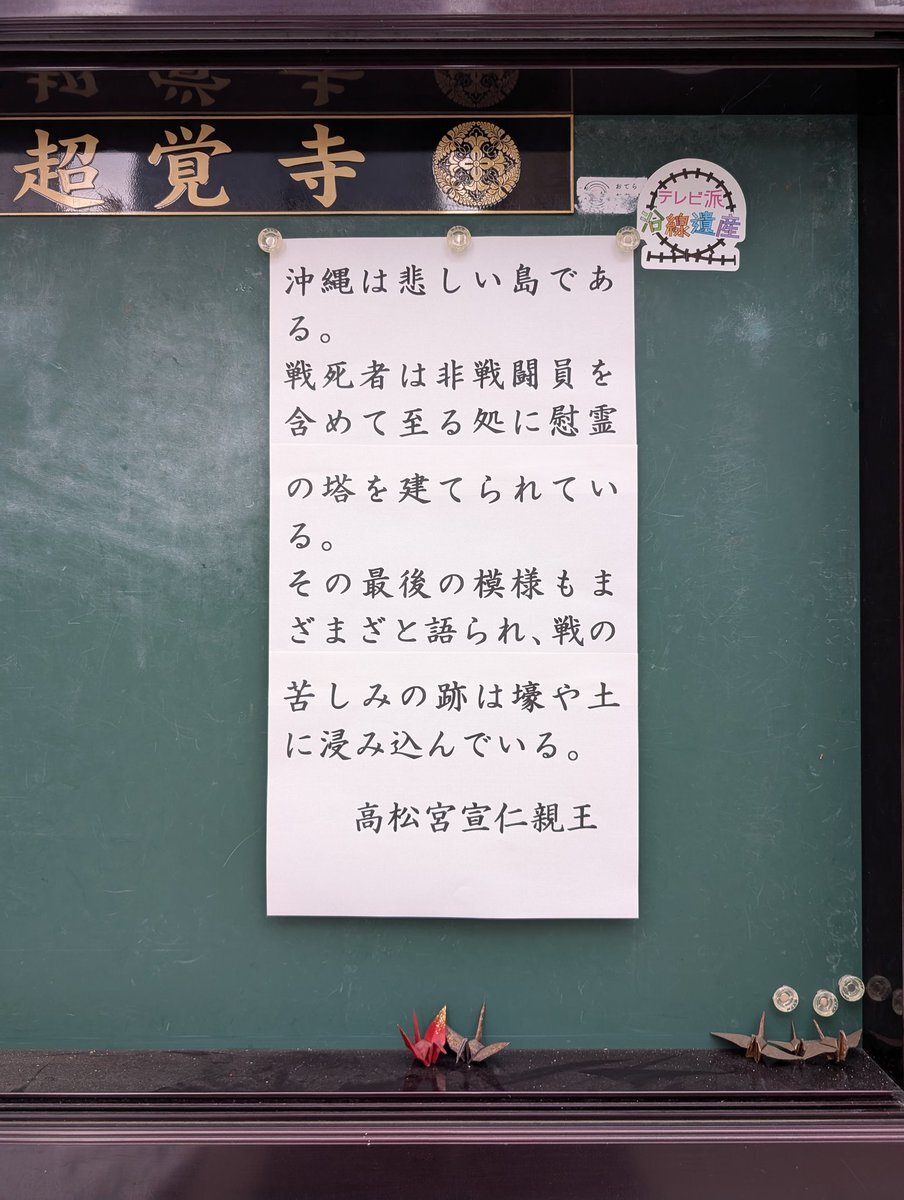 超覚寺
おてら
テレビ派
沿線遺産
沖縄は悲しい島であ
る。
戦死者は非戦闘員を
含めて至る処に慰霊
の塔を建てられてい
る。
その最後の模様もま
ざまざと語られ、戦の
苦しみの跡は壕や土
に浸み込んでいる。
高松宮宣仁親王